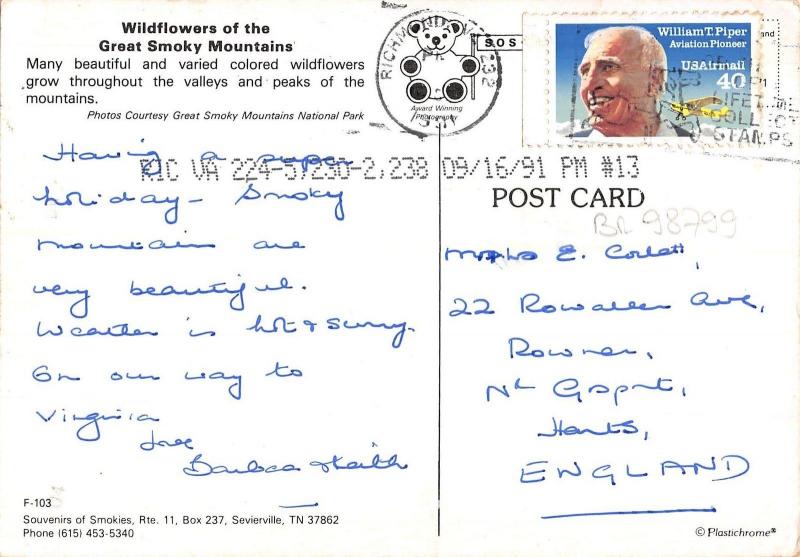 Wildflowers of the
Great Smoky Mountains
Many beautiful and varied colored wildflowers
grow throughout the valleys and peaks of the
mountains.
Photos Courtesy Great Smoky Mountains National Park
Award Winning
Photography
SOS
RICHMOND
232
William T. Piper
Aviation Pioneer
USAirmail
40
LIFETIME
COLLECT
STAMPS
RIC VA 224-5/230-2,238 09/16/91 PM #13
Having a super
holiday - Smoky
mountains are
very beautiful.
Weather is hot & sunny.
On our way to
Virginia
love
Barbara & Keith
POST CARD
BR 98799
E. Corlett,
22 Rowallen Ave,
Rowner,
Nr Gosport,
Hants,
ENGLAND
F-103
Souvenirs of Smokies, Rte. 11, Box 237, Sevierville, TN 37862
Phone (615) 453-5340
© Plastichrome®